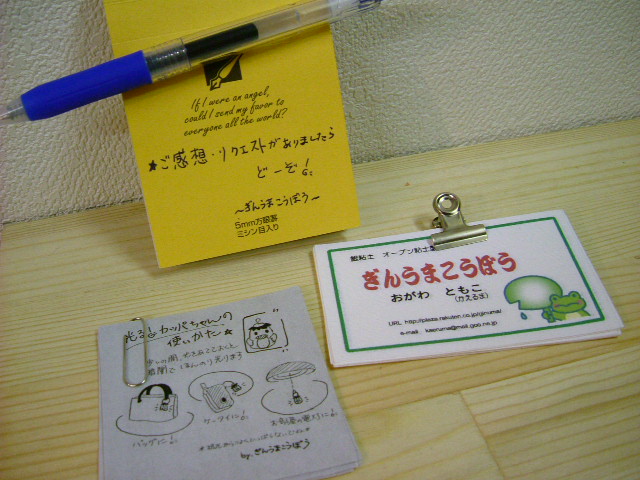 If I were an angel,
could I send my favor to
everyone all the world?
★ご感想・リクエストがありましたら
どーぞ!
〜ぎんうまこうぼう〜
5mm方眼罫
ミシン目入り
銀粘土 オーブン粘土
ぎんうまこうぼう
おがわ ともこ
(かえるぎ)
URL http://plaza.rakuten.co.jp/ginuma/
e-mail
光るカッパちゃんの
使いかた★
バッグに!
ケータイに!
お部屋の電灯に!
by.ぎんうまこうぼう